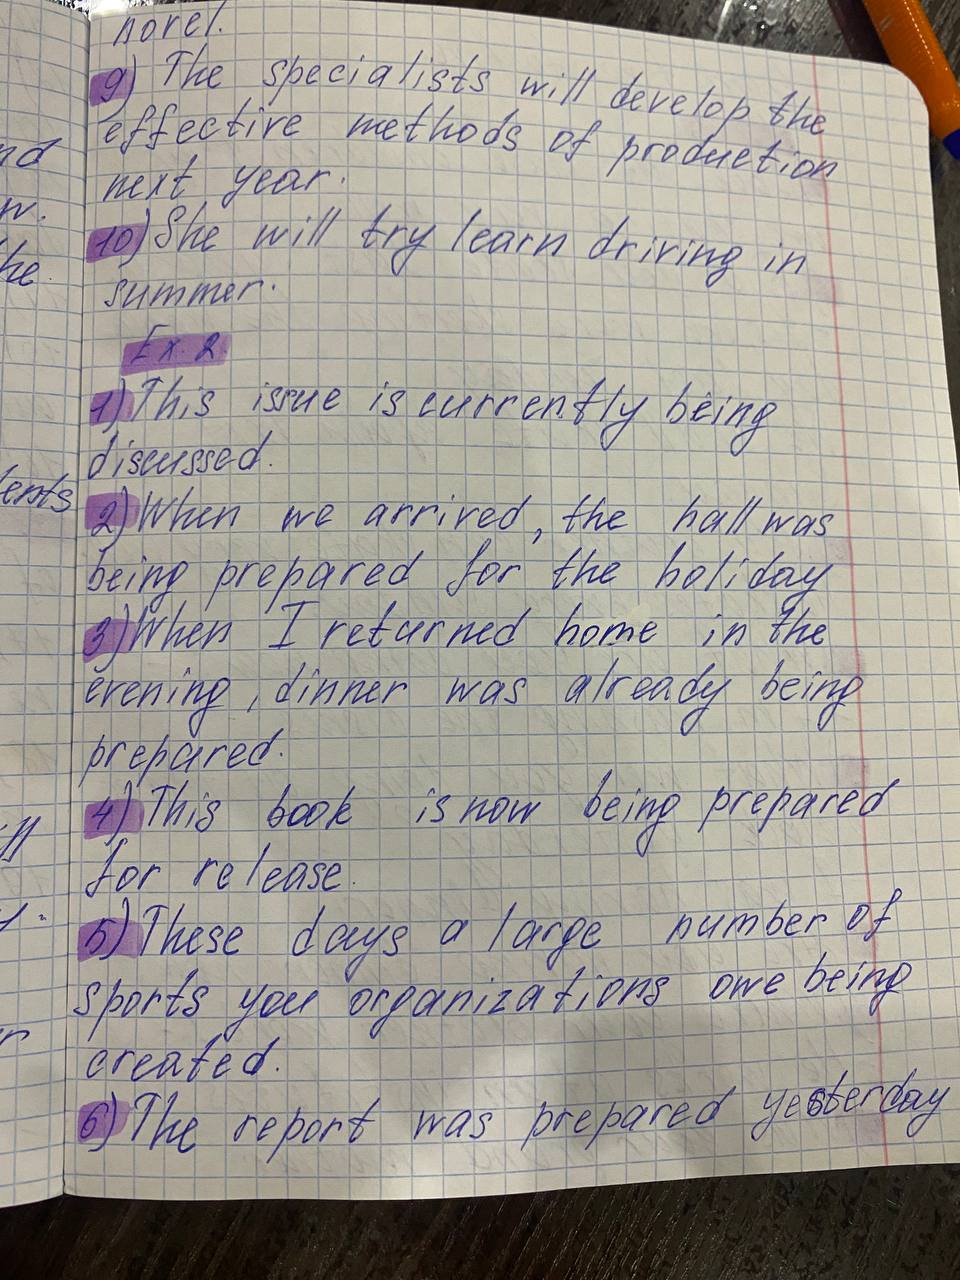 novel.
9) The specialists will develop the
effective methods of production
next year.
10) She will try learn driving in
summer.
Ex. 2
1) This issue is currently being
discussed.
2) When we arrived, the hall was
being prepared for the holiday
3) When I returned home in the
evening, dinner was already being
prepared.
4) This book is now being prepared
for release.
5) These days a large number of
sports you organizations owe being
created.
6) The report was prepared yesterday